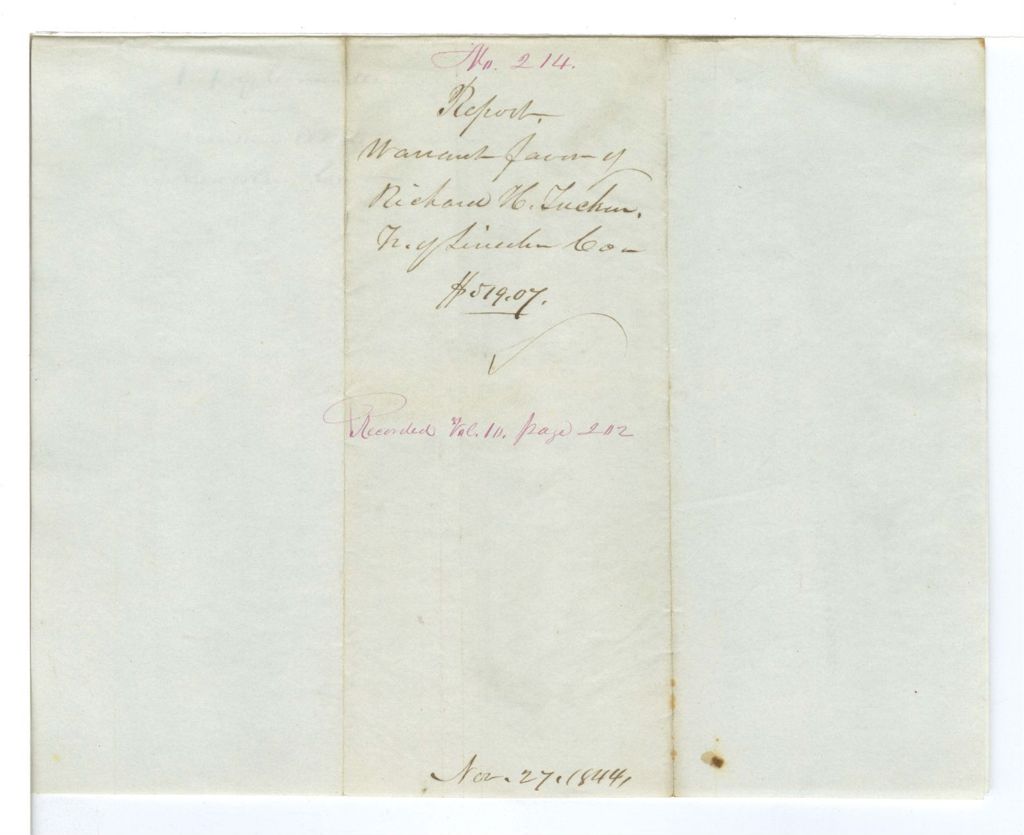 No. 214.
Report.
Warrant favor of
Richard H. Tucker.
Tr. of Lincoln Co—
$519.07.
Recorded Vol. 10. page 202
Nov. 27. 1844,